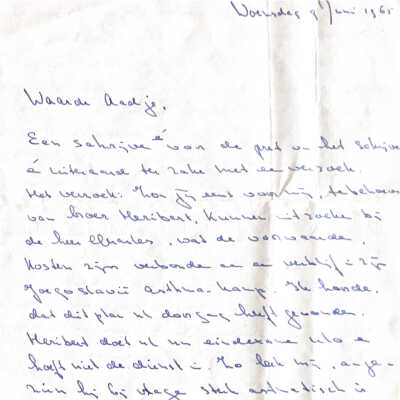 Woensdag 9 Juni 1965
Waarde Aadje,
Een schrijve é voor de pret van het schrijve
á uiteraard ter zake met een verzoek.
Het verzoek: Zou jij eens voor mij, te behoeve
van broer Heribert, kunnen uitzoeken bij
de heer Charles, wat de voorwaarden,
kosten zijn verbonden aan een verblijf in zijn
Joegoslavië asthma-kamp. Ik hoorde,
dat dit plan nl doorgang heeft gevonden.
Heribert doet nl nu eindexamen ulo en
hoeft niet de dienst in. Zo leek mij, aange-
zien hij bij vlage sterk asthmatisch is